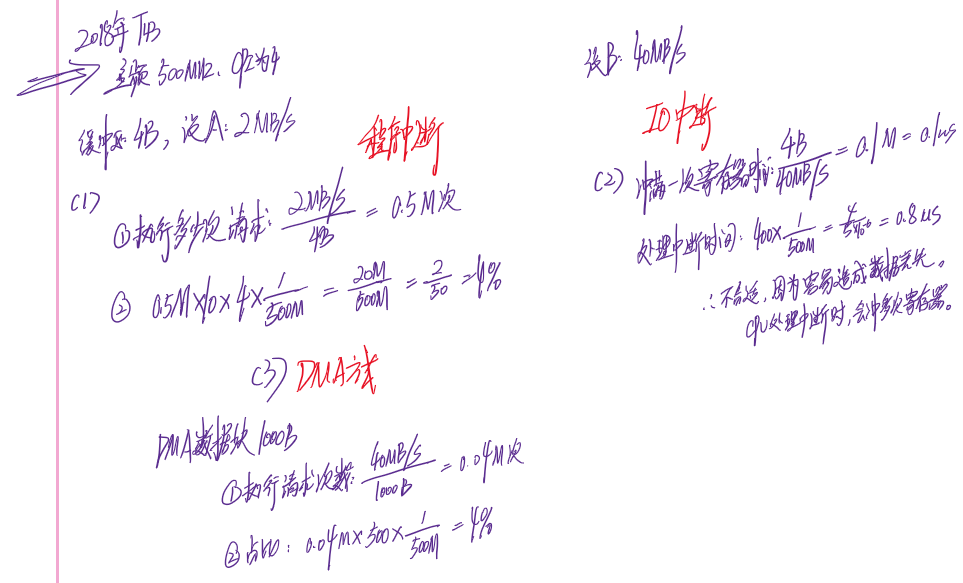 2018年 T43
主频 500MHz、CPI为4
缓冲区 4B, 设A: 2MB/s
程序中断
(1)
①执行多少次请求: 2MB/s / 4B = 0.5M次
② 0.5M×10×4×1/500M = 20M/500M = 2/50 = 4%
(3) DMA方式
DMA数据块 1000B
①执行请求次数: 40MB/s / 1000B = 0.04M次
②占比: 0.04M×500×1/500M = 4%
设B: 40MB/s
IO中断
(2) 冲满一次寄存器时间: 4B / 40MB/s = 0.1M = 0.1us
处理中断时间: 400×1/500M = 4/5M = 0.8us
∴不合适, 因为容易造成数据丢失。
CPU处理中断时, 会冲多次寄存器。